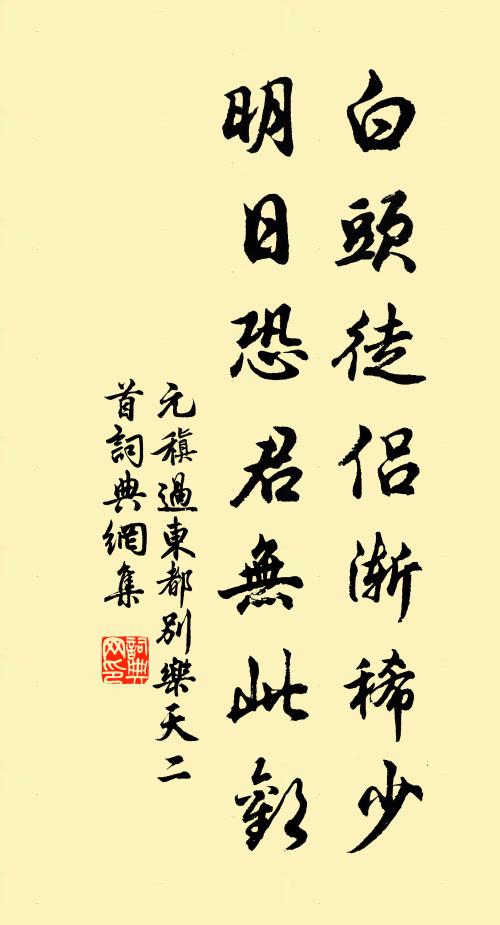 白頭徒侶漸稀少
明日恐君無此歡
元稹過東都別樂天二
首詞典網集
詞典
网印